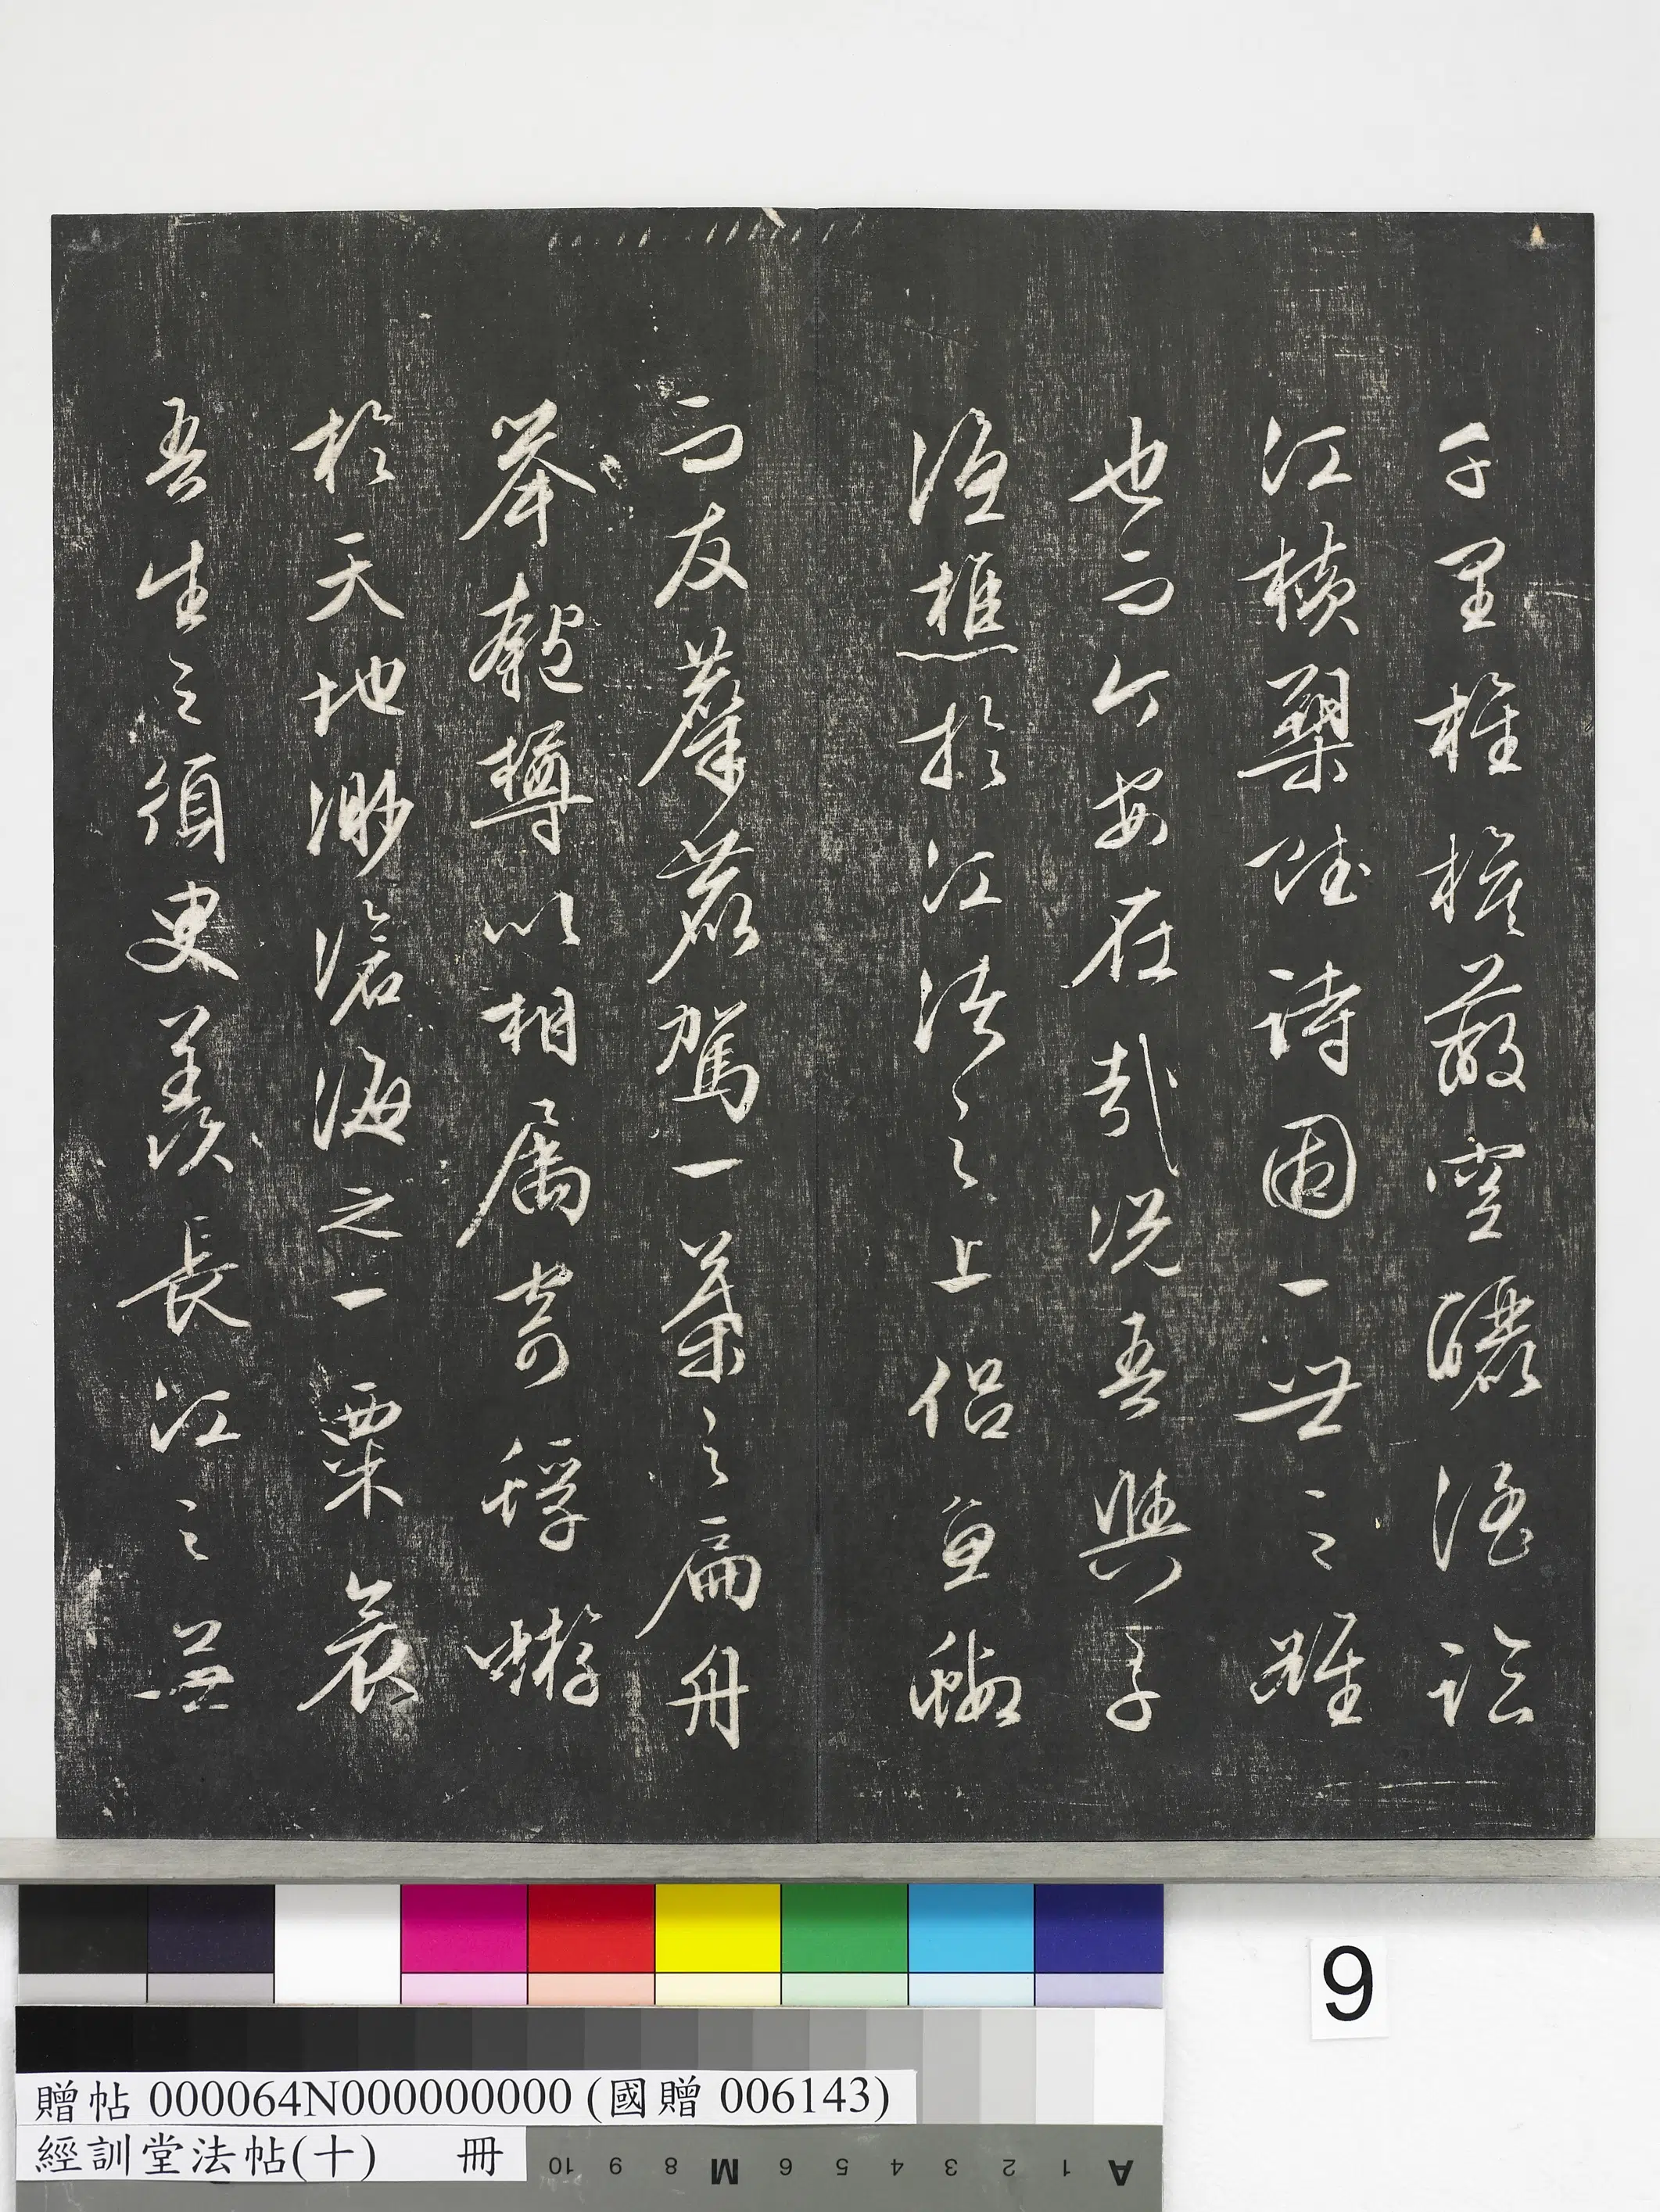 千里旌旗蔽空釃酒臨
江橫槊賦詩固一世之雄
也而今安在哉況吾與子
漁樵於江渚之上侶魚蝦
而友麋鹿駕一葉之扁舟
舉匏樽以相屬寄蜉蝣
於天地渺滄海之一粟哀
吾生之須臾羨長江之無
9
贈帖 000064N000000000 (國贈 006143)
經訓堂法帖(十) 冊
A 1 2 3 4 5 6 M 8 9 10